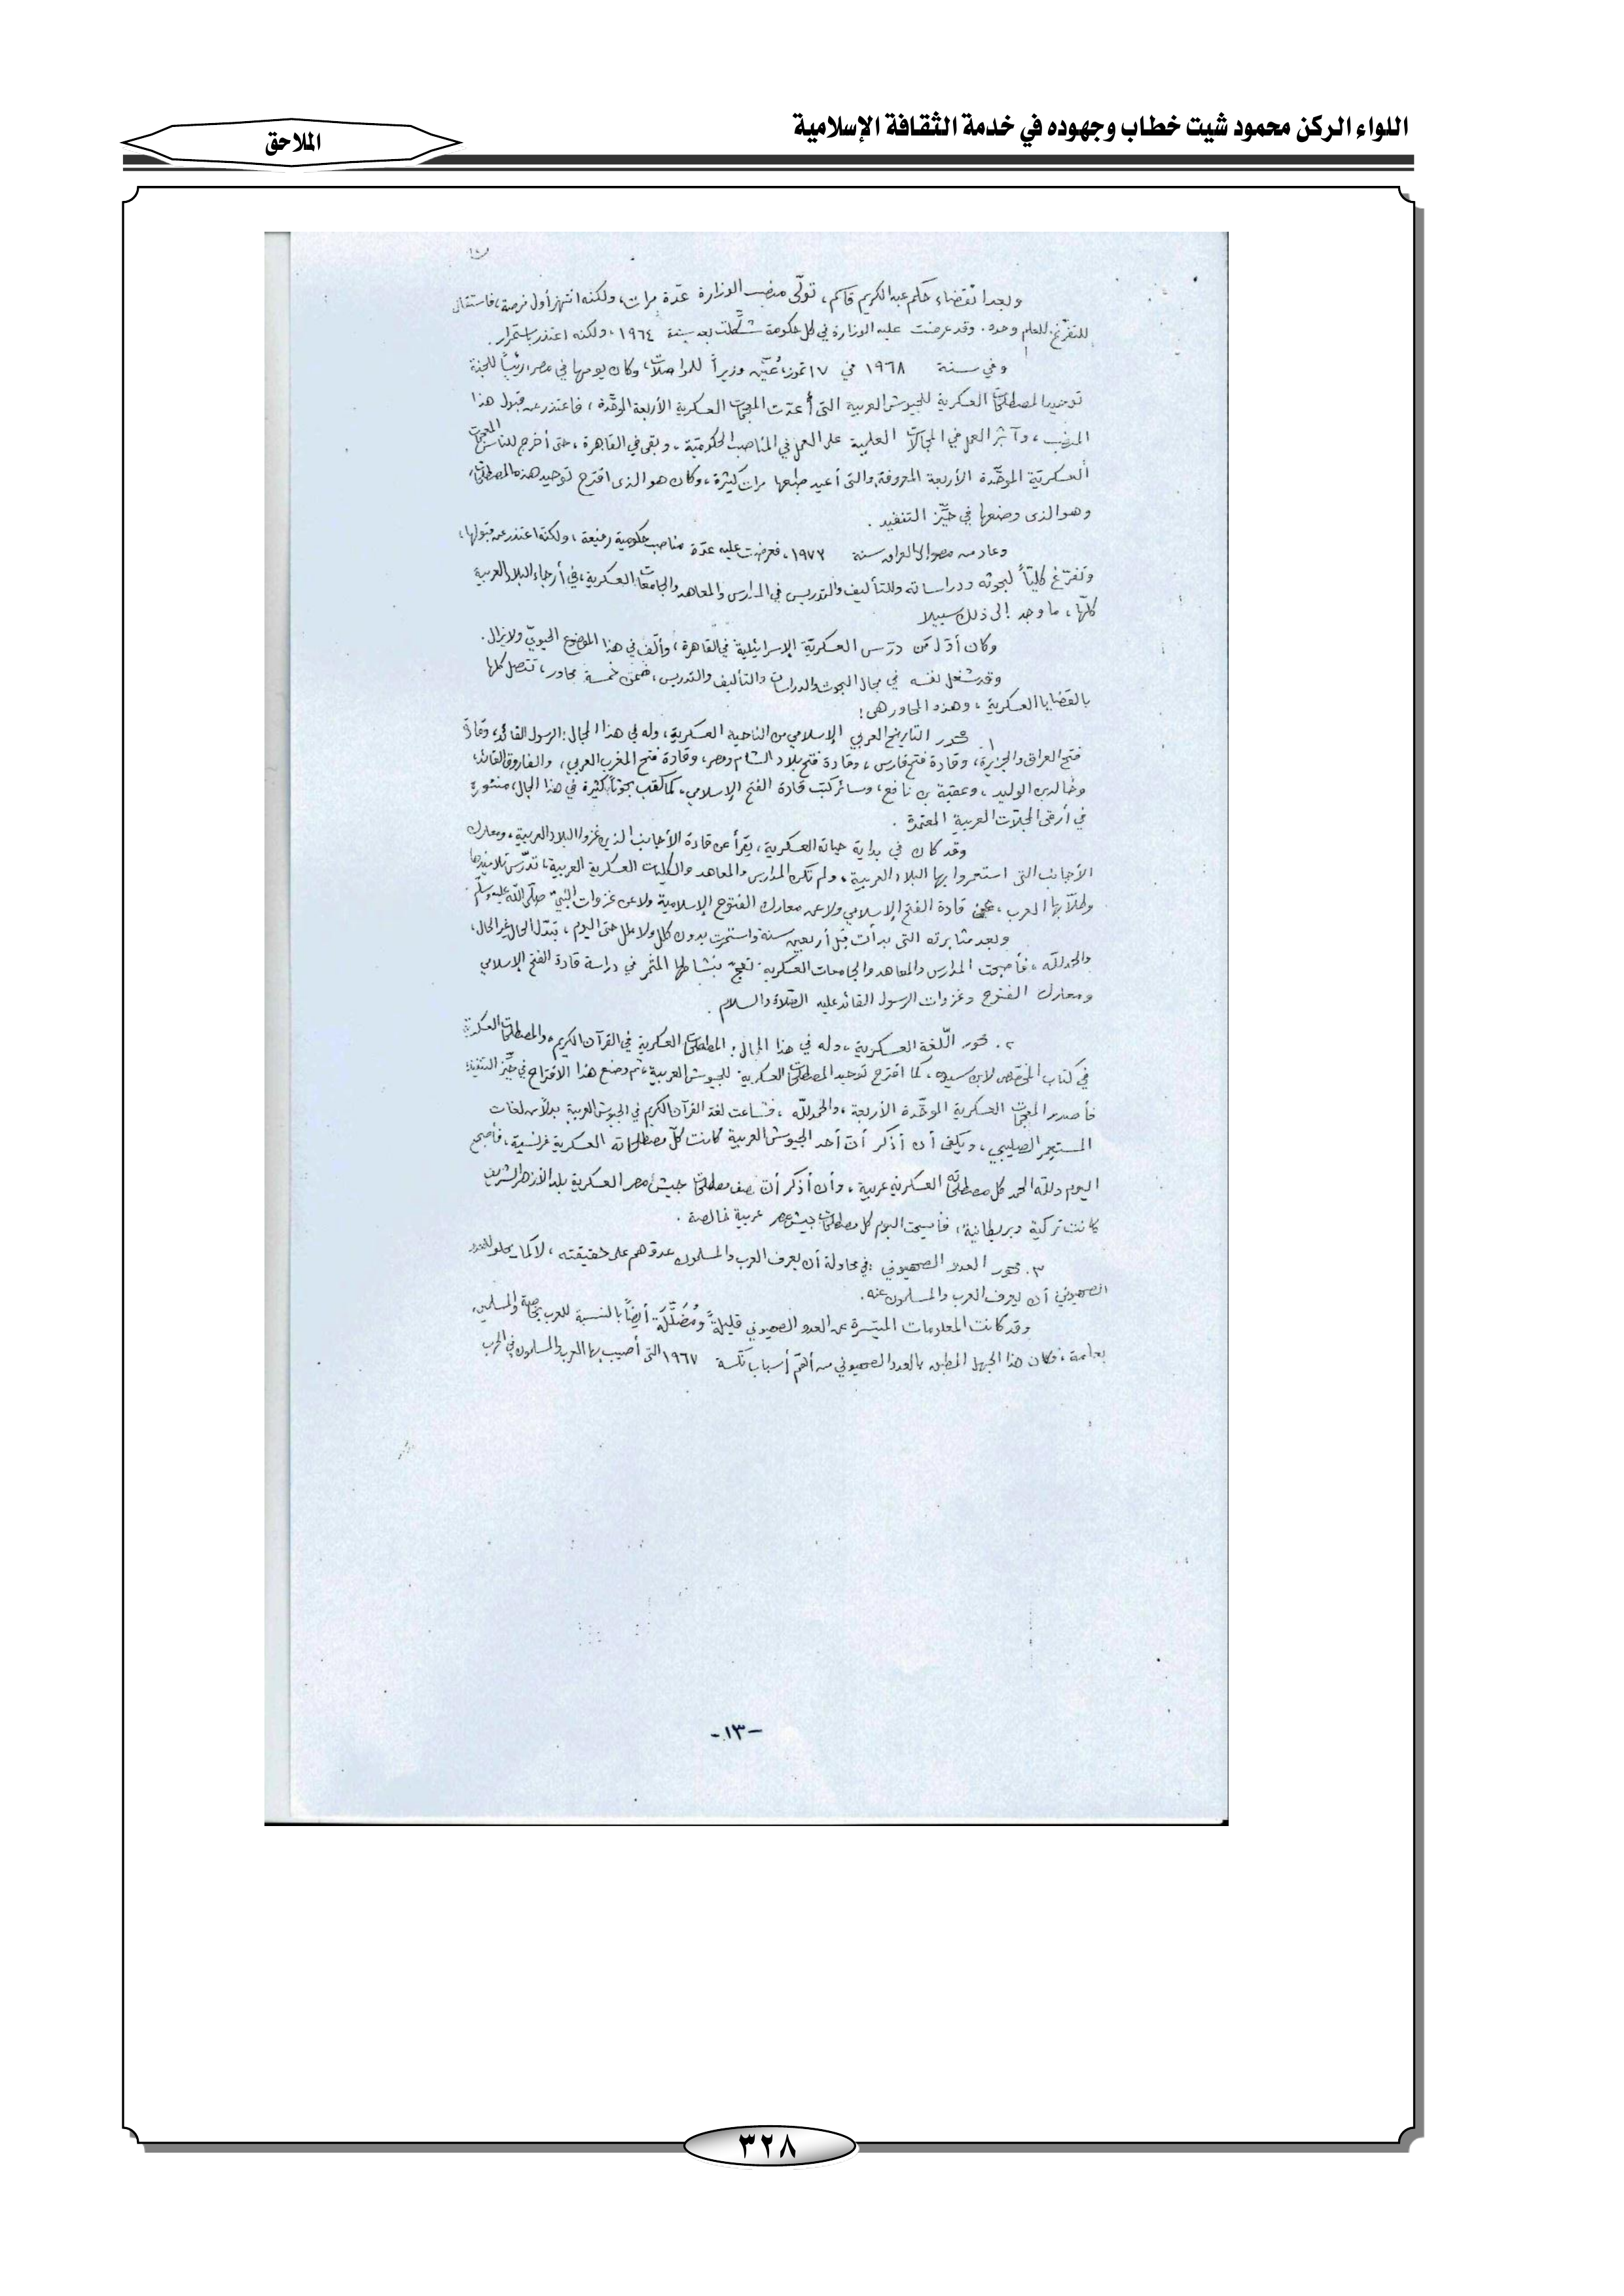 اللواء الركن محمود شيت خطاب وجهوده في خدمة الثقافة الإسلامية
الملاحق
وبعد انقضاء حكم عبد الكريم قاسم، تولّى منصب الوزارة عدّة مرات، ولكنه انتهز أول فرصة، فاستقال
للتفرّغ للعلم وحده. وقد عرضت عليه الوزارة في كل حكومة شكّلت بعد سنة ١٩٦٤، ولكنه اعتذر باستمرار.
وفي سنة ١٩٦٨ في ١٧ تموز، عُيّن وزيراً للمواصلات، وكان يومها في مصر رئيساً للجنة
توحيد المصطلحات العسكرية للجيوش العربية التى أعدّت المعجمات العسكرية الأربعة الموحّدة، فاعتذر عن قبول هذا
المنصب، وآثر العمل في المجالات العلمية على العمل في المناصب الحكوميّة، وبقى في القاهرة، حتى أخرج للناس المعجمات
العسكريّة الموحّدة الأربعة المعروفة، والتى أعيد طبعها مرات كثيرة، وكان هو الذى اقترح توحيد هذه المصطلحات،
وهو الذى وضعها في حيّز التنفيذ.
وعاد من مصر الى العراق سنة ١٩٧٣، فعرضت عليه عدّة مناصب حكومية رفيعة، ولكنه اعتذر عن قبولها،
وتفرّغ كليّاً لبحوثه ودراساته وللتأليف والتدريس في المدارس والمعاهد والجامعات العسكرية، في أرجاء البلاد العربية
كلّها، ما وجد إلى ذلك سبيلا
وكان أوّل مَن درّس العسكريّة الإسرائيلية في القاهرة، وألّف في هذا الموضوع الحيويّ ولا يزال.
وقد شغل نفسه في مجال البحوث والدراسات والتأليف والتدريس، ضمن خمسة محاور، تتصل كلها
بالقضايا العسكرية، وهذه المحاور هى:
١. محور التاريخ العربي الإسلامي من الناحية العسكرية، وله في هذا المجال: الرسول القائد، وقادة
فتح العراق والجزيرة، وقادة فتح فارس، وقادة فتح بلاد الشام ومصر، وقادة فتح المغرب العربي، والفاروق القائد،
وخالد بن الوليد، وعقبة بن نافع، وسائر كتب قادة الفتح الإسلامي، كما كتب بحوثاً كثيرة في هذا المجال، منشورة
في أرقى المجلّات العربية المعتمدة.
وقد كان في بداية حياته العسكرية، يقرأ عن قادة الأجانب الذين غزوا البلاد العربية، ومعارك
الأجانب التى استعمروا بها البلاد العربية، ولم تكن المدارس والمعاهد والكليات العسكرية العربية، تدرّس تلاميذها
وطلّابها العرب، عن قادة الفتح الإسلامي ولا عن معارك الفتوح الإسلامية ولا عن غزوات النبيّ صلّى الله عليه وسلّم.
وبعد مثابرته التى بدأت قبل أربعين سنة واستمرت بدون كلل ولا ملل حتى اليوم، تبدّل الحال غير الحال،
والحمد لله، فأصبحت المدارس والمعاهد والجامعات العسكرية تعجّ بنشاطها المثمر في دراسة قادة الفتح الإسلامي
ومعارك الفتوح وغزوات الرسول القائد عليه الصّلاة والسلام.
٢. محور اللّغة العسكرية، وله في هذا المجال: المصطلحات العسكرية في القرآن الكريم، والمصطلحات العسكرية
في كتاب المخصّص لابن سيده، كما اقترح توحيد المصطلحات العسكرية للجيوش العربية، ثم وضع هذا الاقتراح في حيّز التنفيذ،
فأصدر المعجمات العسكرية الموحّدة الأربعة، والحمد للّه، فشاعت لغة القرآن الكريم في الجيوش العربية بدلاً من لغات
المستعمر الصليبي، ويكفى أن أذكر أنّ أحد الجيوش العربية كانت كلّ مصطلحاته العسكرية فرنسية، فأصبح
اليوم ولله الحمد كل مصطلحاته العسكرية عربية، وأن أذكر أنّ نصف مصطلحات جيش مصر العسكرية بلد الأزهر الشريف
كانت تركية وبريطانية، فأصبحت اليوم كل مصطلحات جيش مصر عربية خالصة.
٣. محور العدو الصهيوني: في محاولة أن يعرف العرب والمسلمون عدوّهم على حقيقته، لا كما يحلو للعدو
الصهيوني أن يعرف العرب والمسلمون عنه.
وقد كانت المعلومات الميسّرة عن العدو الصهيوني قليلةً ومُضَلّلَة أيضاً بالنسبة للعرب بخاصة والمسلمين
بعامة، وكان هذا الجهل المطبق بالعدو الصهيوني من أهمّ أسباب نكسة ١٩٦٧ التى أصيب بها العرب والمسلمون في الحرب
-١٣-
٣٢٨